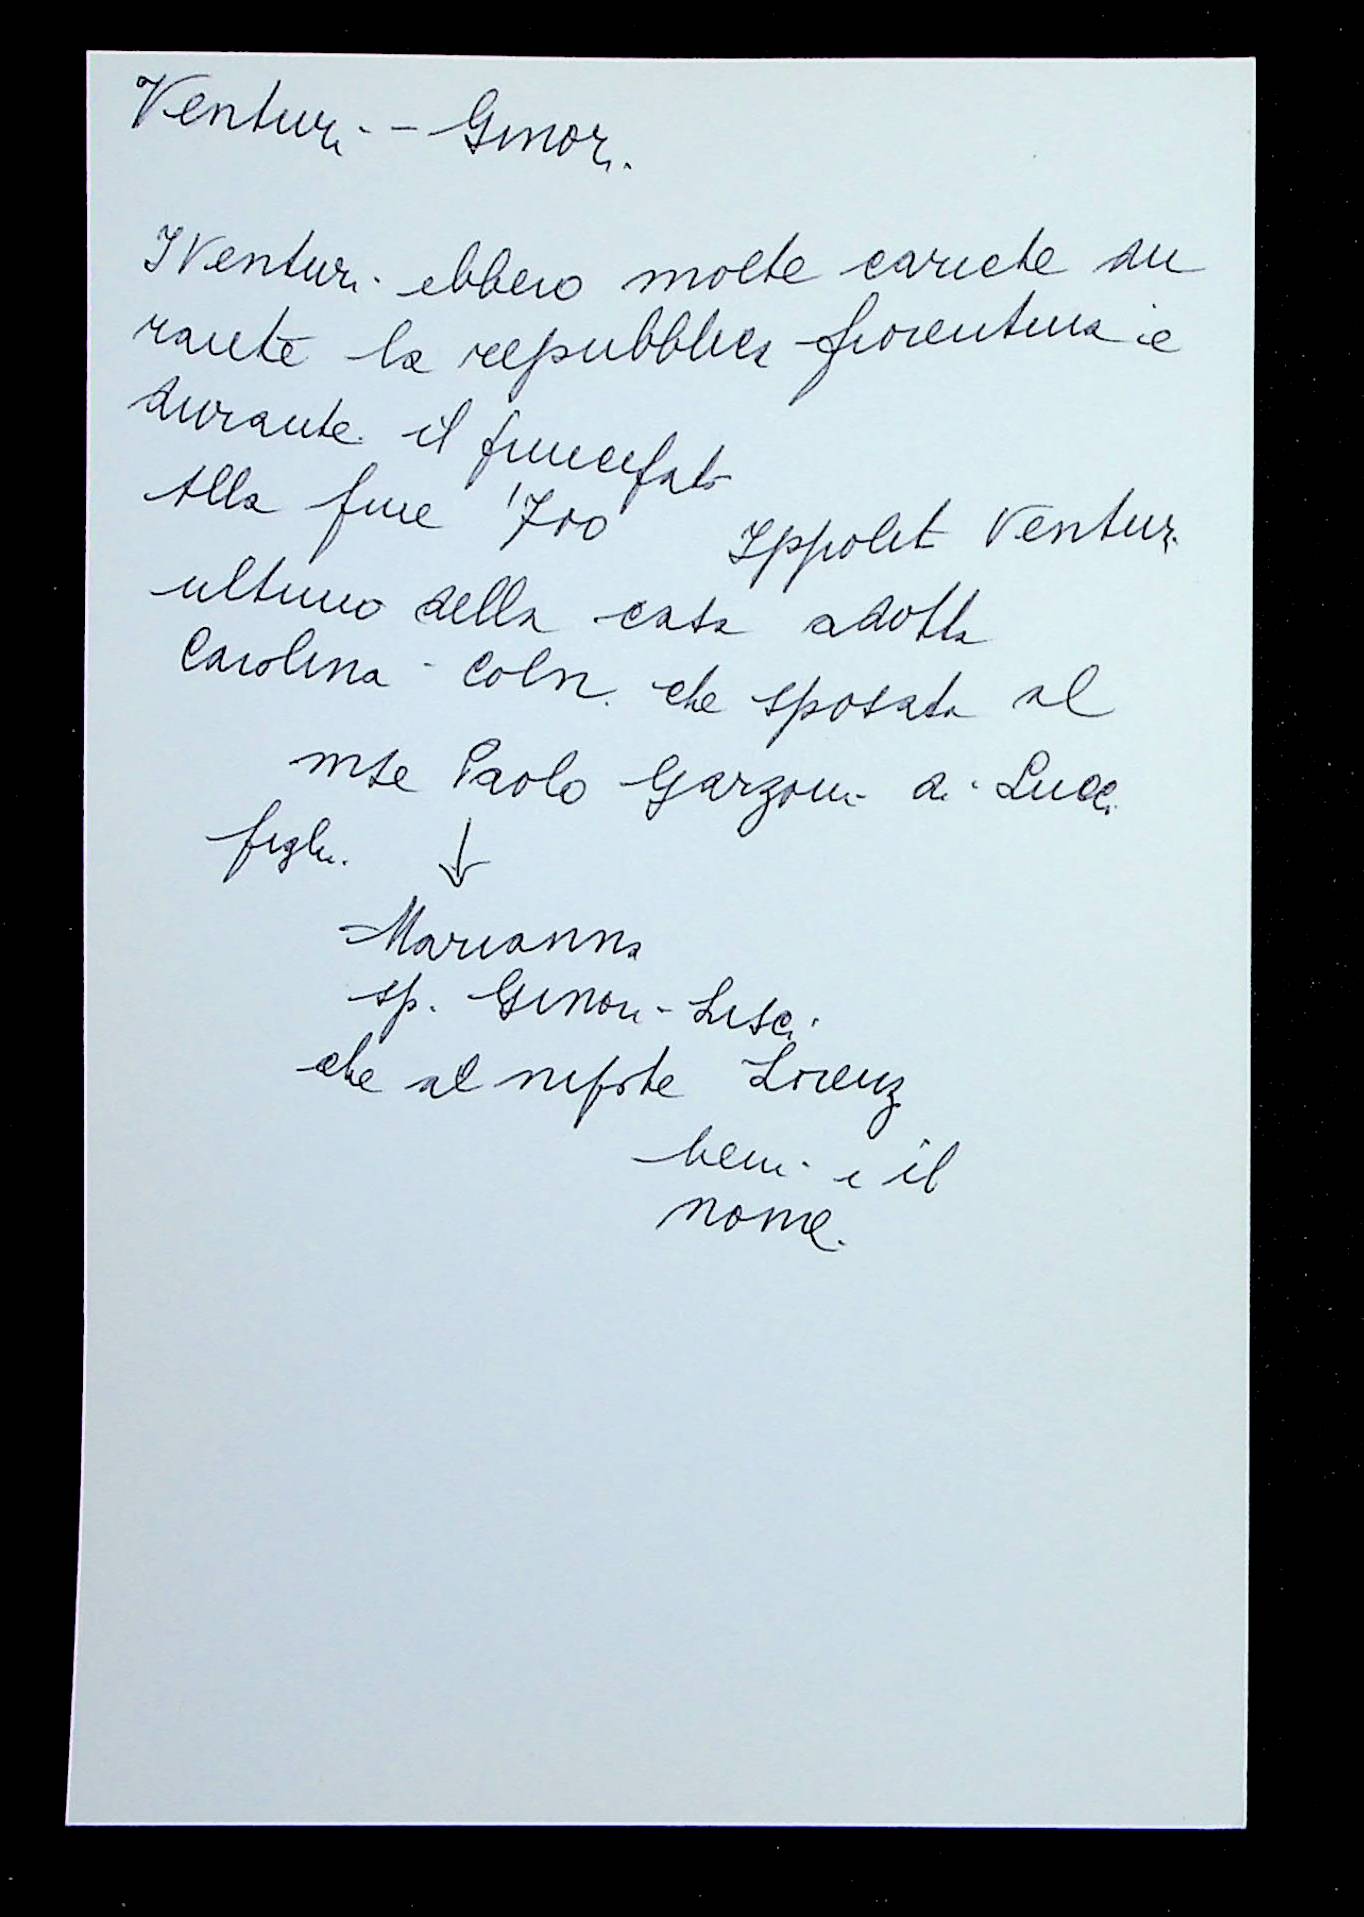 Venturi - Ginori.
I Venturi ebbero molte cariche du
rante la repubblica fiorentina e
durante il principato
Alla fine '700 Ippolit Venturi
ultimo della casa adotta
Carolina che sposata al
mse Paolo Garzoni di Lucca
figli. ↓
Marianna
sp. Ginori-Lisci
che al nipote Lorenz
beni e il
nome.